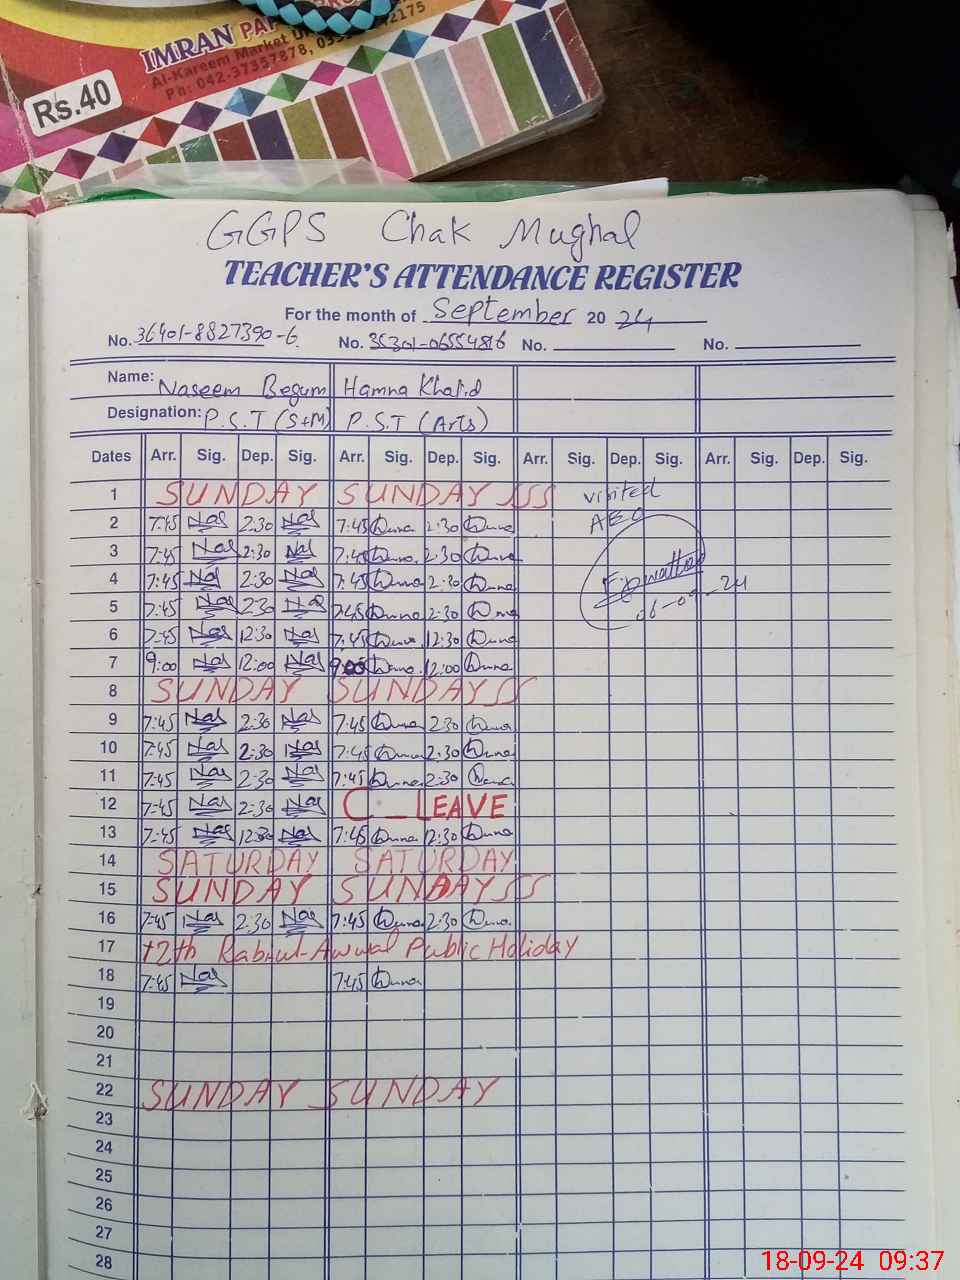 IMRAN PAP
Al-Kareem Market
Ph: 042-37357878,
Rs.40
GGPS Chak Mughal
TEACHER'S ATTENDANCE REGISTER
For the month of September 2024
No. 36401-8827390-6 No. No. No.
Name: Naseem Begum Hamna Khalid
Designation: P.S.T (S+M) P.S.T (Arts)
Dates Arr. Sig. Dep. Sig. Arr. Sig. Dep. Sig. Arr. Sig. Dep. Sig. Arr. Sig. Dep. Sig.
1 SUNDAY SUNDAY SSS visited
AEO
2 7:45 Nas 2:30 Nas 7:45 2:30
3 7:45 Nas 2:30 Nas 7:45 2:30
4 7:45 Nas 2:30 Nas 7:45 2:30
5 7:45 Nas 2:30 Nas 7:45 2:30 06-09-24
6 7:45 Nas 12:30 Nas 7:45 12:30
7 9:00 Nas 12:00 Nas 9:00 12:00
8 SUNDAY SUNDAY SS
9 7:45 Nas 2:30 Nas 7:45 2:30
10 7:45 Nas 2:30 Nas 7:45 2:30
11 7:45 Nas 2:30 Nas 7:45 2:30
12 7:45 Nas 2:30 Nas C_LEAVE
13 7:45 Nas 12:30 Nas 7:45 12:30
14 SATURDAY SATURDAY
15 SUNDAY SUNDAY SS
16 7:45 Nas 2:30 Nas 7:45 2:30
17 12th Rabi-ul-Awwal Public Holiday
18 7:45 Nas 7:45
19
20
21
22 SUNDAY SUNDAY
23
24
25
26
27
28
18-09-24 09:37